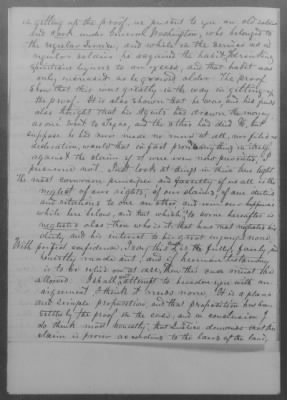 in getting up the proof, we present to you an old soldier
and under General Washington, who belonged to
the regular Service, and while in the service as a
regular soldier, he acquired the habit of drinking
spiritous liquors to an excess, and that habit was
only increased as he growed older. The proof
show that this was greatly in the way in getting
the proof. It is also shown that he was, and his friends
also thought that his Agents had drawn the money
and to Texas, and the other had died &c, but
suppose he had now made no move at all, nor filed no
declaration, would that in fact prove any thing in itself
against the claim if it were even now presented, I
presume not. But look at things in their true light
The most common principle and frailty of us all is the
neglect of our rights, of our claims, of our duties
and relations to one another, and even our happiness
while here below, and that which is to come hereafter is
neglected also, then who is it that has not neglected his
duty, and his interest to his great injury, none
With perfect confidence, I say this is fully, fairly and
honestly made out, and if human testimony
is to be relied on at all, then this case must be
allowed. I shall not attempt to burden you with an
argument, I think it needs none. It is a plain
and simple proposition, and that proposition has been
by the proof in the case, and in conclusion I
do think most honestly, that Justice demands that the
claim is proven according to the laws of the land,